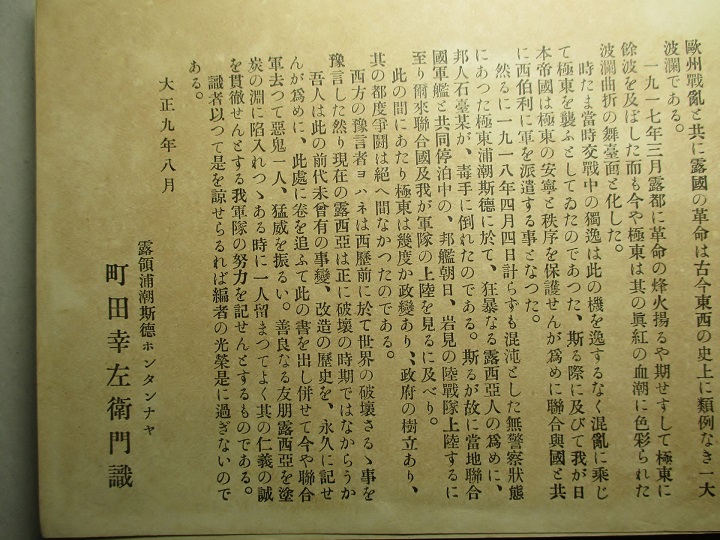 歐州戰亂と共に露國の革命は古今東西の史上に類例なき一大
波瀾である。
一九一七年三月露都に革命の烽火揚るや期せずして極東に
餘波を及ぼした而も今や極東は其の眞紅の血潮に色彩られた
波瀾曲折の舞臺面と化した。
時たま當時交戰中の獨逸は此の機を逸するなく混亂に乘じ
て極東を襲ふとしてゐたのであつた、斯る際に及びて我が日
本帝國は極東の安寧と秩序を保護せんが爲めに聯合與國と共
に西伯利に軍を派遣する事となつた。
然るに一九一八年四月四日計らずも混沌とした無警察狀態
にあつた極東浦潮斯德に於て、狂暴なる露西亞人の爲めに、
邦人石臺某が、毒手に倒れたのである。斯るが故に當地聯合
國軍艦と共同停泊中の、邦艦朝日、岩見の陸戰隊上陸するに
至り爾來聯合國及我が軍隊の上陸を見るに及べり。
此の間にあたり極東は幾度か政變あり、政府の樹立あり、
其の都度爭鬪は絕へ間なかつたのである。
西方の豫言者ヨハネは西歷前に於て世界の破壞さるゝ事を
豫言した然り現在の露西亞は正に破壞の時期ではなからうか
吾人は此の前代未曾有の事變、改造の歷史を、永久に記せ
んが爲めに、此處に卷を追ふて此の書を出し併せて今や聯合
軍去つて惡鬼一人、猛威を振るい。善良なる友朋露西亞を塗
炭の淵に陷入れつゝある時に一人留まつてよく其の仁義の誠
を貫徹せんとする我軍隊の努力を記せんとするものである。
識者以つて是を諒せらるれば編者の光榮是に過ぎないので
ある。
大正九年八月
露領浦潮斯德ホンタンナヤ
町田幸左衞門識